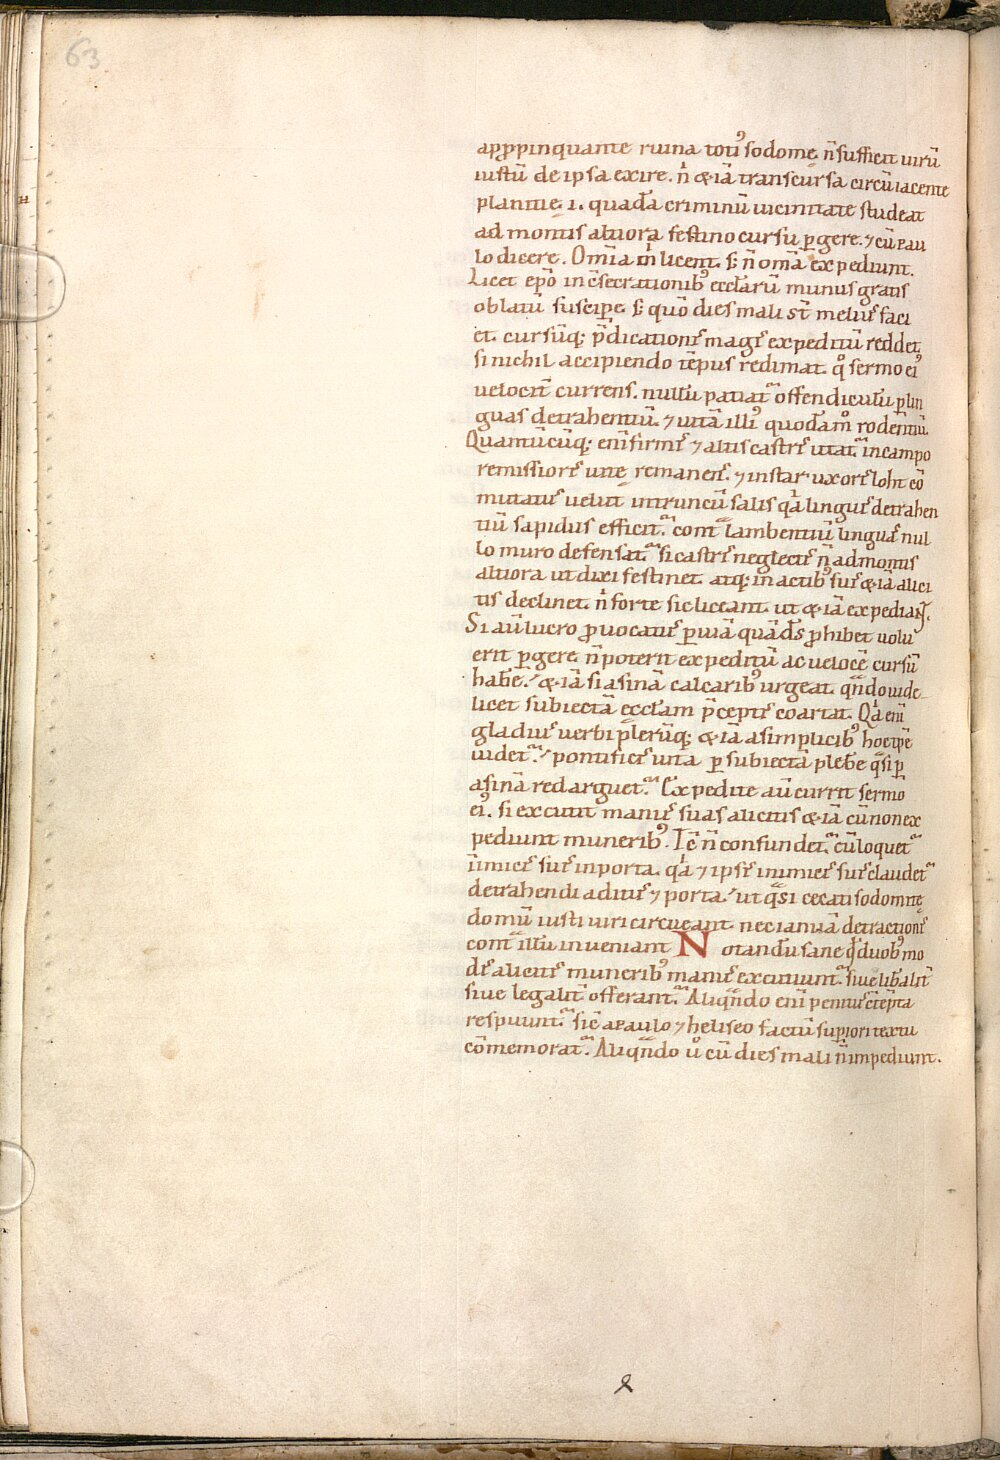 63
appropinquante ruina toti᾽ sodomę. n̄ sufficit uirū
iustū de ipsa exire. n̍ &iā transcursa circūiacente
planitię .i. quadā criminū uicinitate studeat
ad montis altiora festino cursu ꝑgere. ⁊ cū pau
lo dicere. Om̄ia m̍ licent. s; n̄ om̄a expediunt.
Licet epō in c̄secrationib᾽ eccl̄arū munus gratis
oblatū suscipe. s; quō dies mali st̄ meli᾽ faci
et. cursūq; p̄dicationis magis expeditū reddet.
si nichil accipiendo tēpus redimat. qͦ sermo ei᾽
uelocit̄ currens. nullū patiat᷑ offendiculū ꝑ lin
guas detrahentiū. ⁊ uitā illi᾽ quodāmͦ rodentiū.
Quantūcūq; eni firmis ⁊ altis castris utat᷑ in campo
remissioris uitę remanens. ⁊ instar uxoris loth eō
mutatus uelut in truncū salis qͣ linguis detrahen
tiū sapidus efficit᷑. contͣ lambentiū linguas nul
lo muro defensat᷑. si castris neglectis n̄ ad montis
altiora ut dixi festinet. atq; in actib᾽ suis &iā alici
tis declinet. n̍ forte sic liceant. ut &iā expediant.
Si aū lucro ꝓuocatus ꝑ uiā quā ds̄ ꝓhibet uolu
erit ꝑgere. n̄ poterit expeditū ac uelocē cursū
habe. &iā si asinā calcarib᾽ urgeat. qn̄do uide
licet subiectā eccl̄am p̄ceptis coartat. Qͥa eni
gladius uerbi plerūq; &iā a simplicib᾽ hoc tp̄e
uidet᷑. pontificis uita ꝑ subiectā plebē qͣsi ꝑ
asinā redarguet᷑. Expedite aū currit sermo
ei᾽. si excutit manus suas alicitis &iā cū non ex
pediunt munerib᾽. Iċ n̄ confundet᷑ cū loquet᷑
inimicis suis in porta. qͥa ⁊ ipsis inimicis suis claudet᷑
detrahendi aditus ⁊ porta. ut qͣsi cecati sodomitę
domū iusti uiri circueant. nec ianuā detractionis
contͣ illū inueniant Notandū sane qd̄ duob᾽ mo
dis alicitis munerib᾽ manus excutiunt᷑. siue libalit̄
siue legalit̄ offerant᷑. Aliqn̄do eni penitus c̄tēpta
respuunt᷑. sic̄ a paulo ⁊ heliseo factū supiori textu
cōmemorat᷑. Aliqn̄do u̍ cū dies mali n̄ impediunt.